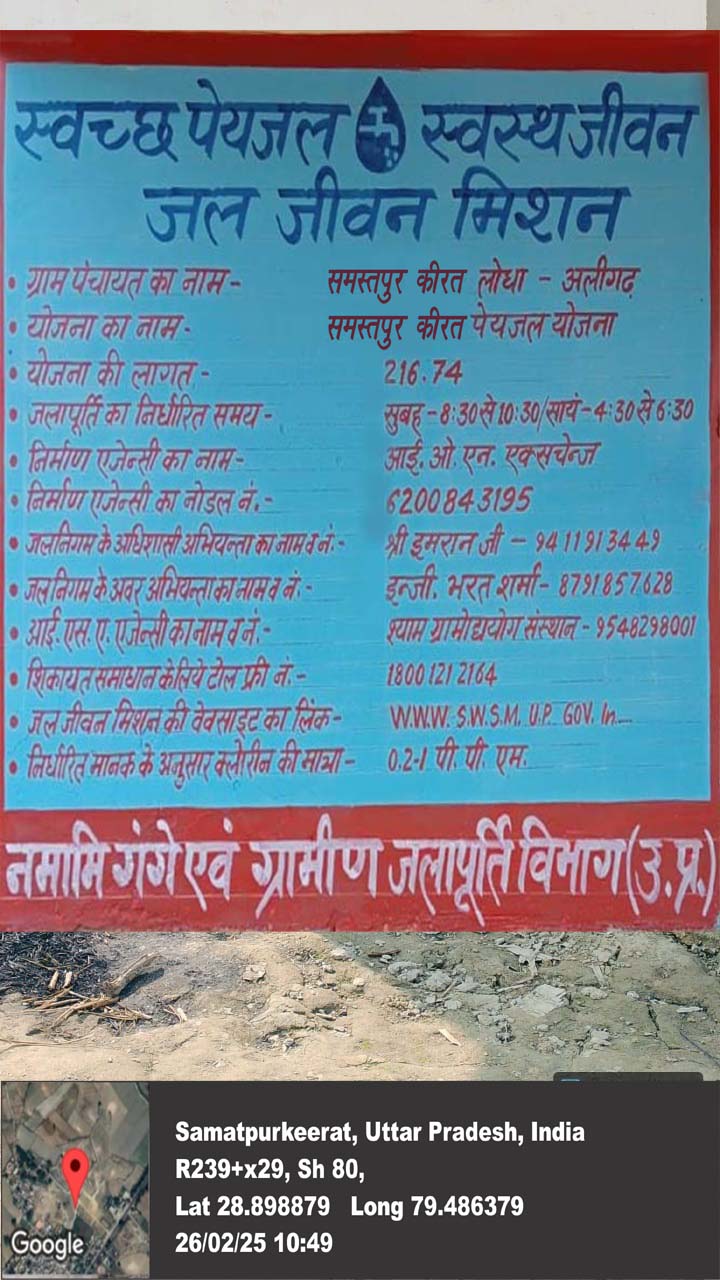 स्वच्छ पेयजल स्वस्थ जीवन
जल जीवन मिशन
• ग्राम पंचायत का नाम - समस्तपुर कीरत लोधा - अलीगढ़
• योजना का नाम - समस्तपुर कीरत पेयजल योजना
• योजना की लागत - 216.74
• जलापूर्ति का निर्धारित समय - सुबह - 8:30 से 10:30/सायं - 4:30 से 6:30
• निर्माण एजेन्सी का नाम - आई. ओ. एन. एक्सचेन्ज
• निर्माण एजेन्सी का नोडल नं. - 6200843195
• जलनिगम के अधिशासी अभियन्ता का नाम व नं. - श्री इमरान जी - 9411913449
• जलनिगम के अवर अभियन्ता का नाम व नं. - इन्जी. भरत शर्मा - 8791857628
• आई. एस. ए. एजेन्सी का नाम व नं. - श्याम ग्रामोद्ययोग संस्थान - 9548298001
• शिकायत समाधान के लिये टोल फ्री नं. - 1800 121 2164
• जल जीवन मिशन की वेवसाइट का लिंक - W.W.W. S.W.S.M. U.P. GOV. In....
• निर्धारित मानक के अनुसार क्लोरीन की मात्रा - 0.2-1 पी. पी. एम.
नमामि गंगे एवं ग्रामीण जलापूर्ति विभाग (उ.प्र.)
Samatpurkeerat, Uttar Pradesh, India
R239+x29, Sh 80,
Lat 28.898879 Long 79.486379
26/02/25 10:49
Google